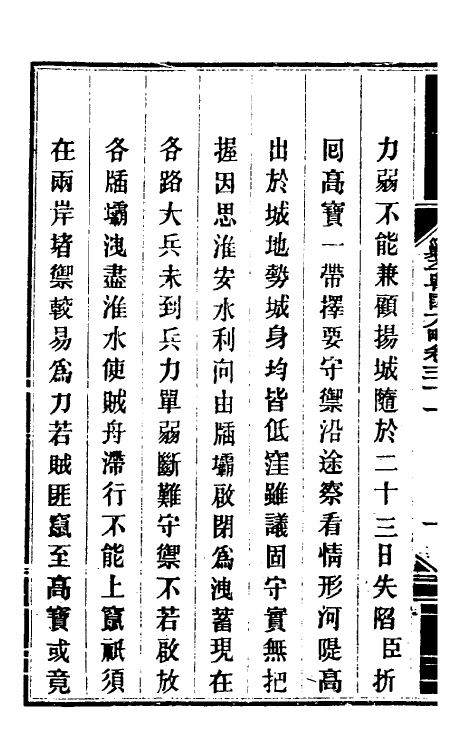 力弱不能兼顧揚城隨於二十三日失陷臣折
囘高寶一帶擇要守禦沿途察看情形河隄高
出於城地勢城身均皆低窪雖議固守實無把
握因思淮安水利向由牐壩啟閉爲洩蓄現在
各路大兵未到兵力單弱斷難守禦不若啟放
各牐壩洩盡淮水使賊舟滯行不能上竄祇須
在兩岸堵禦較易爲力若賊匪竄至高寶或竟